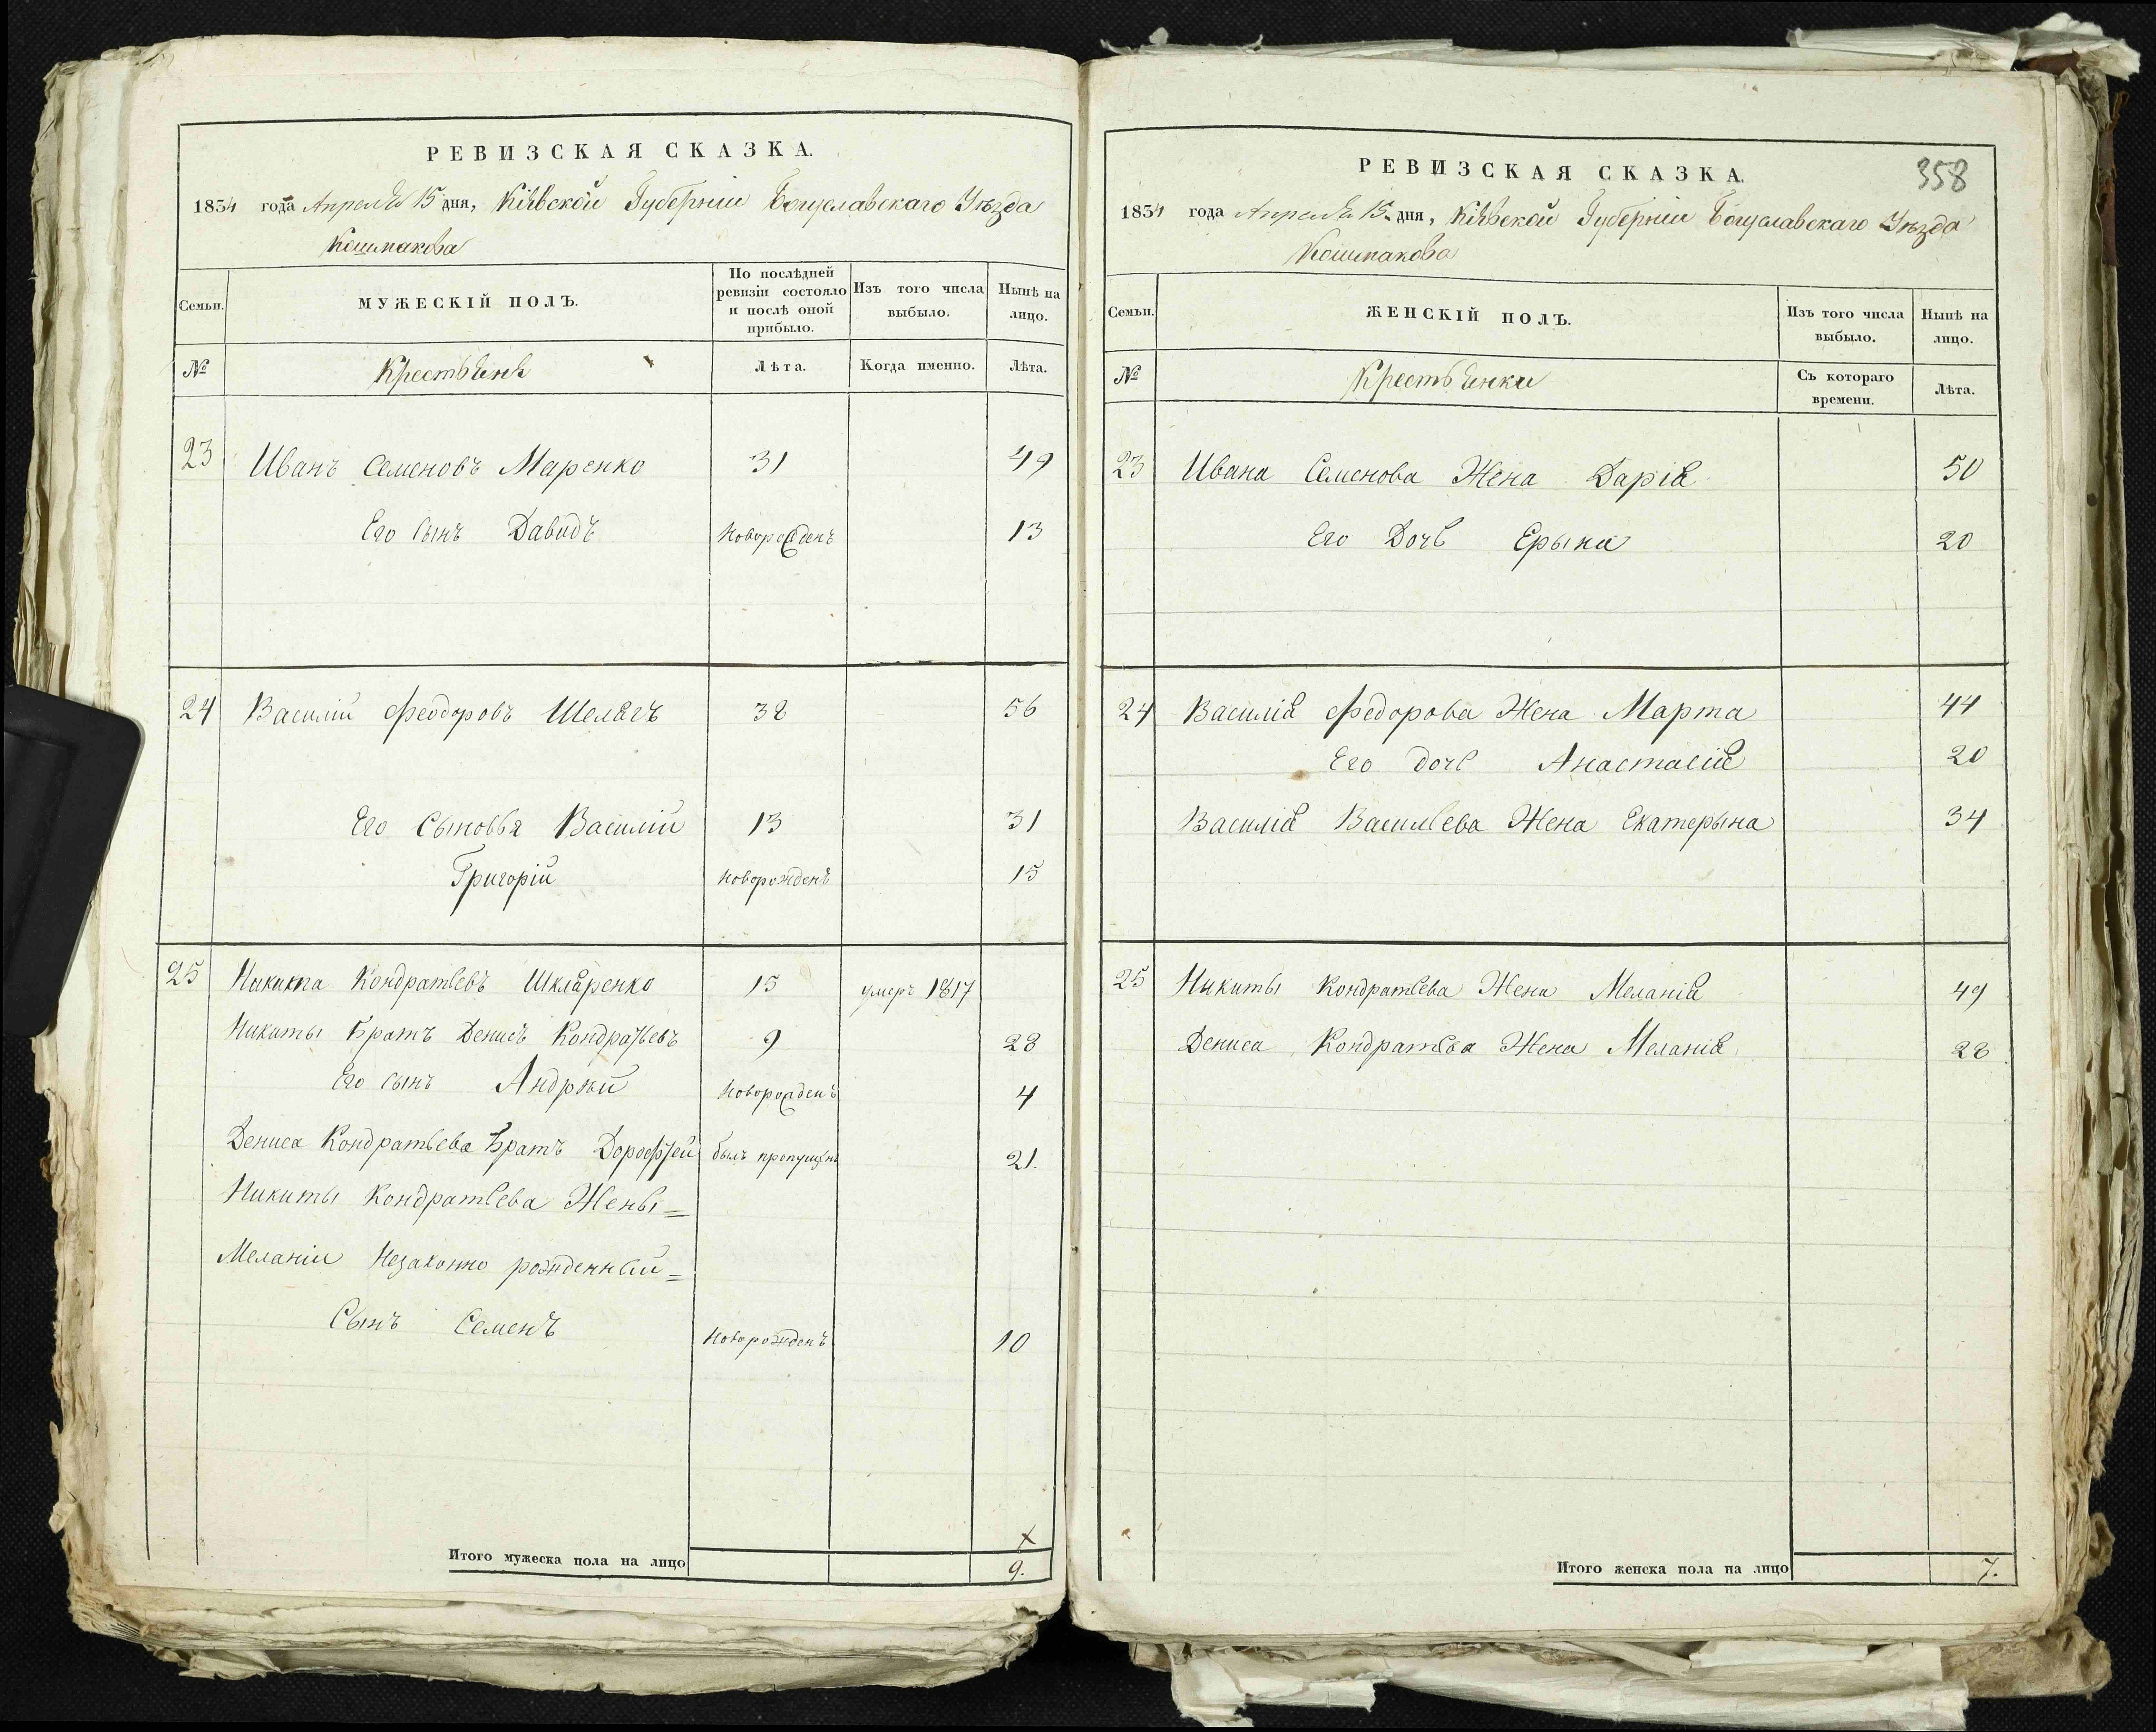 РЕВИЗСКАЯ СКАЗКА.
1834 года Апреля 15 дня, Кіевской Губерніи Богуславскаго Уѣзда
Кошмакова
Семьи.
МУЖЕСКІЙ ПОЛЪ.
По послѣдней ревизіи состояло и послѣ оной прибыло.
Изъ того числа выбыло.
Нынѣ на лицо.
№
Крестьяне
Лѣта.
Когда именно.
Лѣта.
23 Иванъ Семеновъ Маренко 31 49
Его сынъ Давидъ новорожденъ 13
24 Василій Феодоровъ Шелягъ 38 56
Его Сыновья Василій 13 31
Григорій новорожденъ 15
25 Никита Кондратьевъ Шкляренко 15 умеръ 1817
Никиты Братъ Денисъ Кондратьевъ 9 28
Его сынъ Андрѣй Новорожденъ 4
Дениса Кондратьева Братъ Дорофѣей былъ пропущенъ 21.
Никиты Кондратьева Жены=
Меланіи Незаконно рожденный=
Сынъ Семенъ Новорожденъ 10
х
Итого мужеска пола на лицо 9.
358
РЕВИЗСКАЯ СКАЗКА.
1834 года Апреля 15. дня, Кіевской Губерніи Богуславскаго Уѣзда
Кошмакова
Семьи.
ЖЕНСКІЙ ПОЛЪ.
Изъ того числа выбыло.
Нынѣ на лицо.
№
Крестьянки
Съ котораго времени.
Лѣта.
23 Ивана Семенова Жена Дарія 50
Его Дочь Ерына 20
24 Василія Федорова Жена Марта 44
Его дочь Анастасія 20
Василія Васильева Жена Екатерына 34
25 Никиты Кондратьева Жена Меланія 49
Дениса Кондратьева Жена Меланія 28
Итого женска пола на лицо 7.